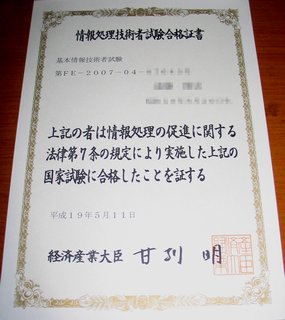 情報処理技術者試験合格証書
基本情報技術者試験
第FE-2007-04-
上記の者は情報処理の促進に関する
法律第7条の規定により実施した上記の
国家試験に合格したことを証する
平成19年5月11日
経済産業大臣 甘利 明